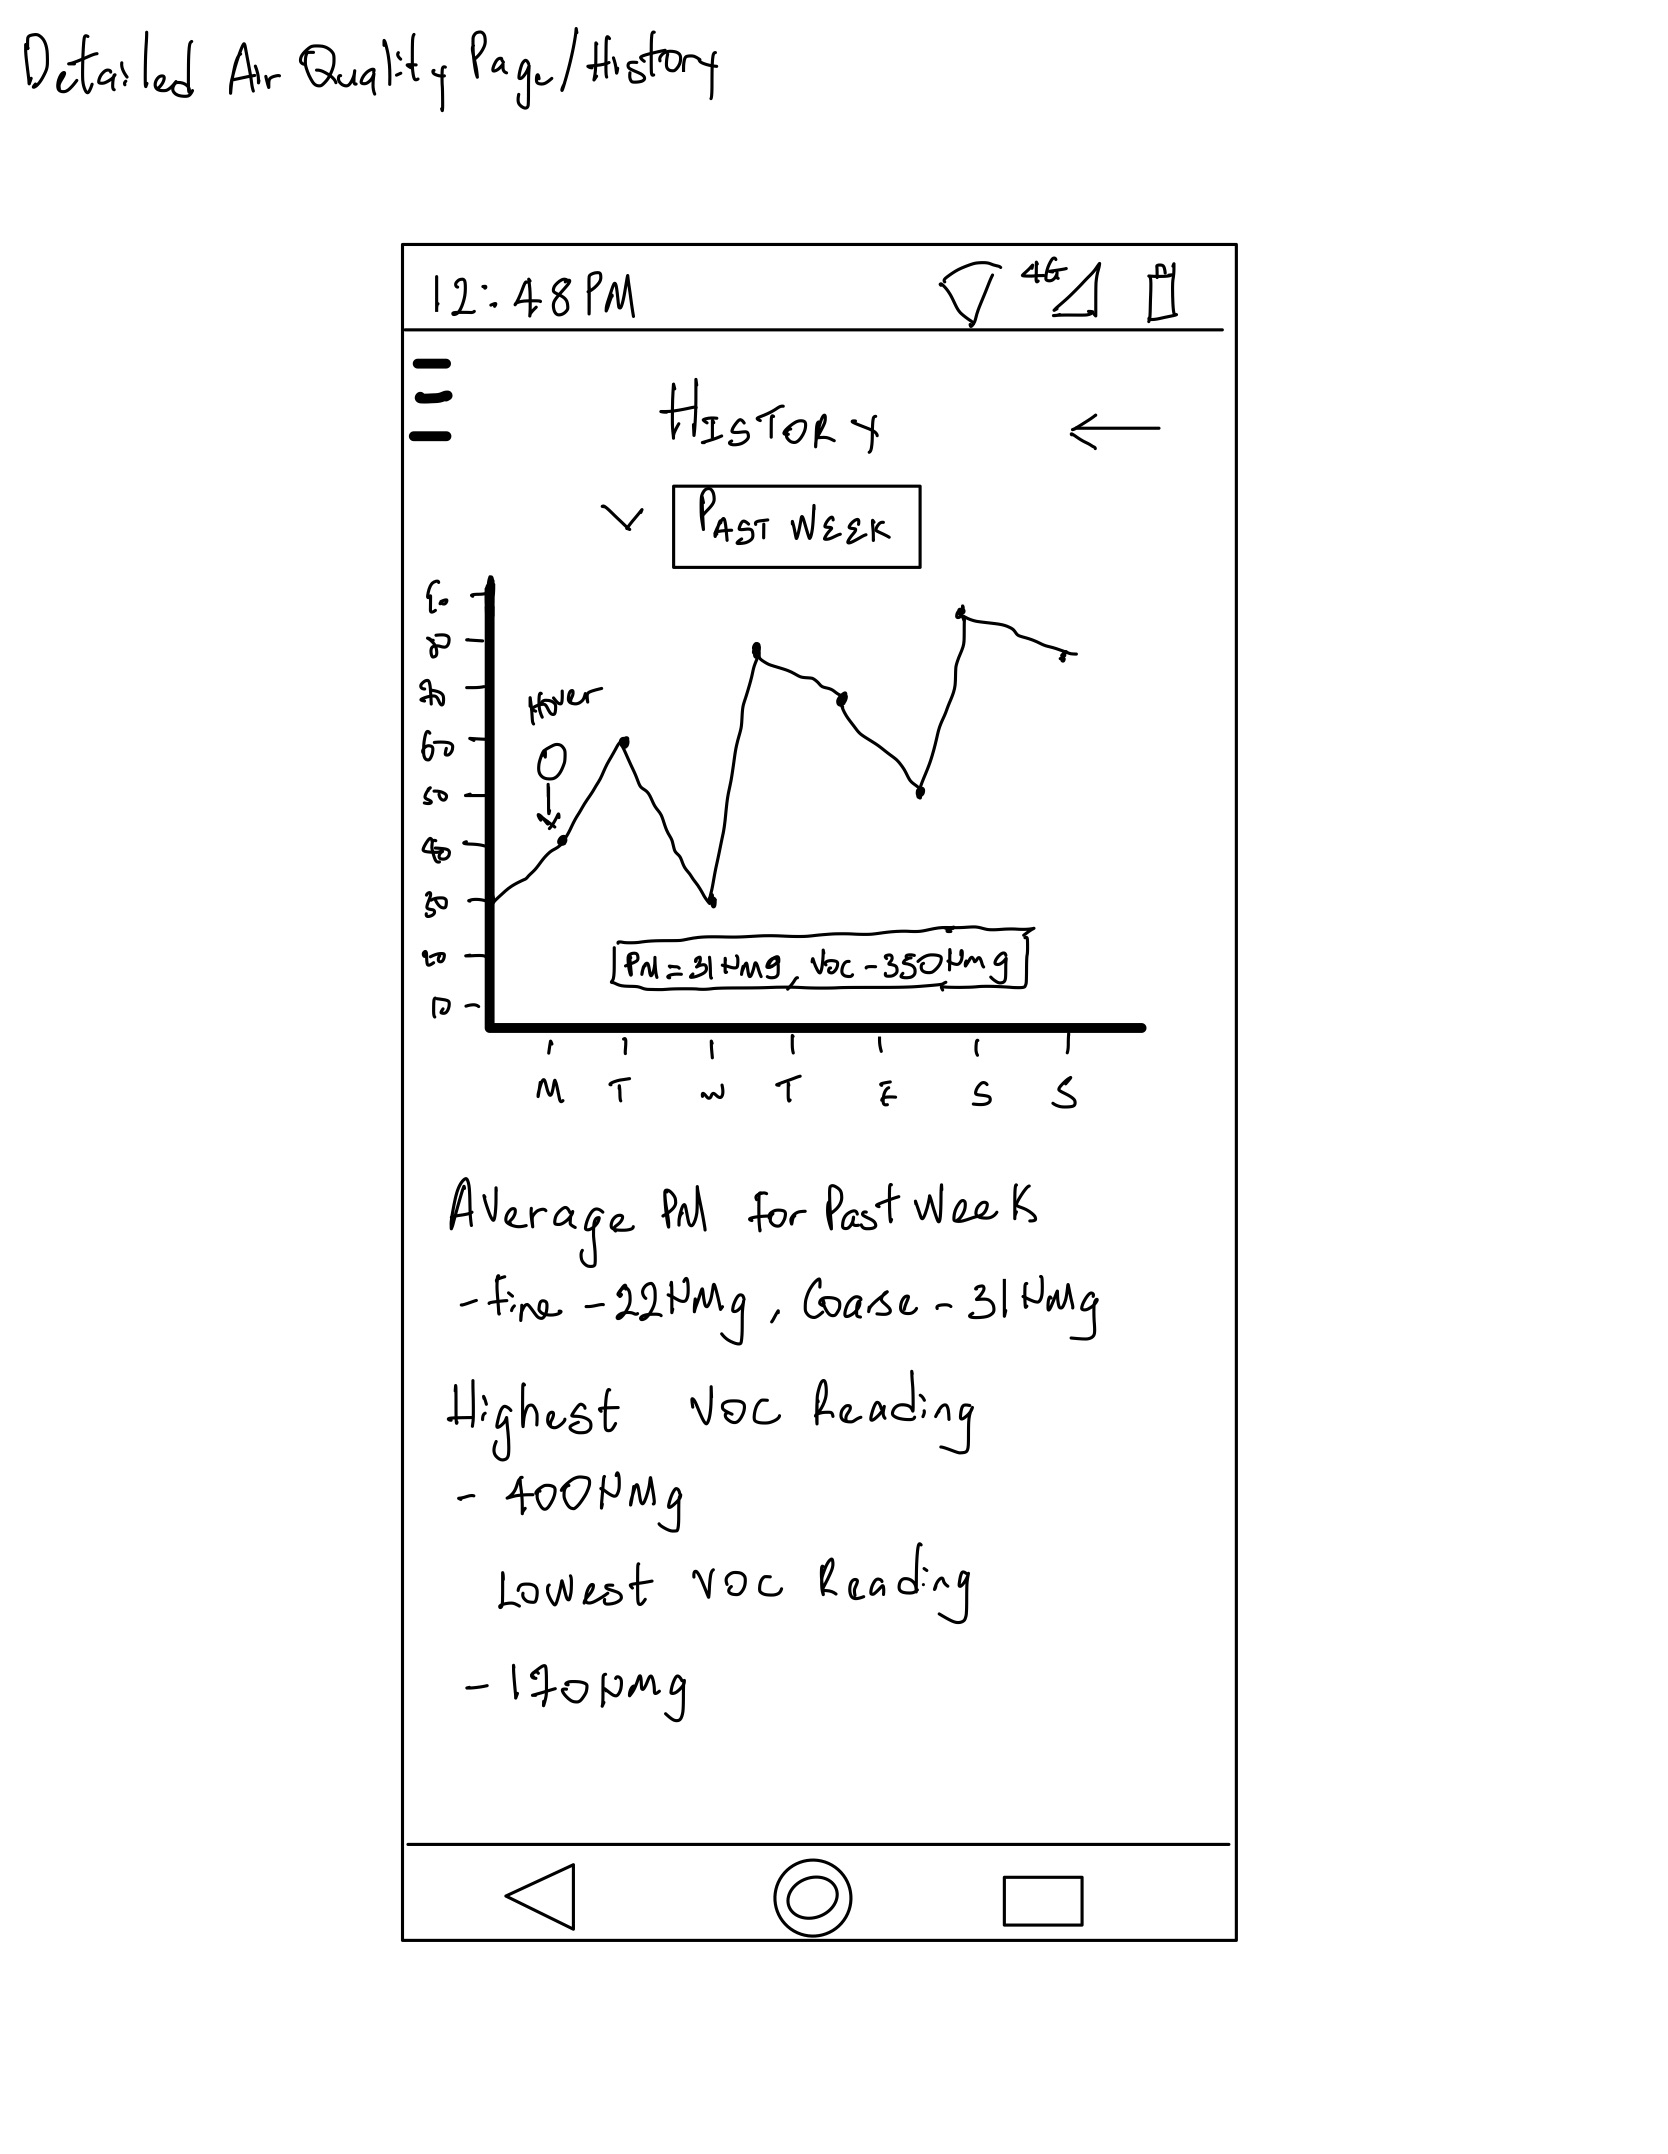 Detailed Air Quality Page/History
12:48PM 4G
HISTORY
PAST WEEK
90
80
70
Hover
60
50
40
30
20
10
PM=31µmg, VOC-350µmg
M T W T F S S
Average PM for Past Week
- fine - 22µmg, Coarse - 31µmg
Highest VOC Reading
- 400µmg
Lowest VOC Reading
- 170µmg